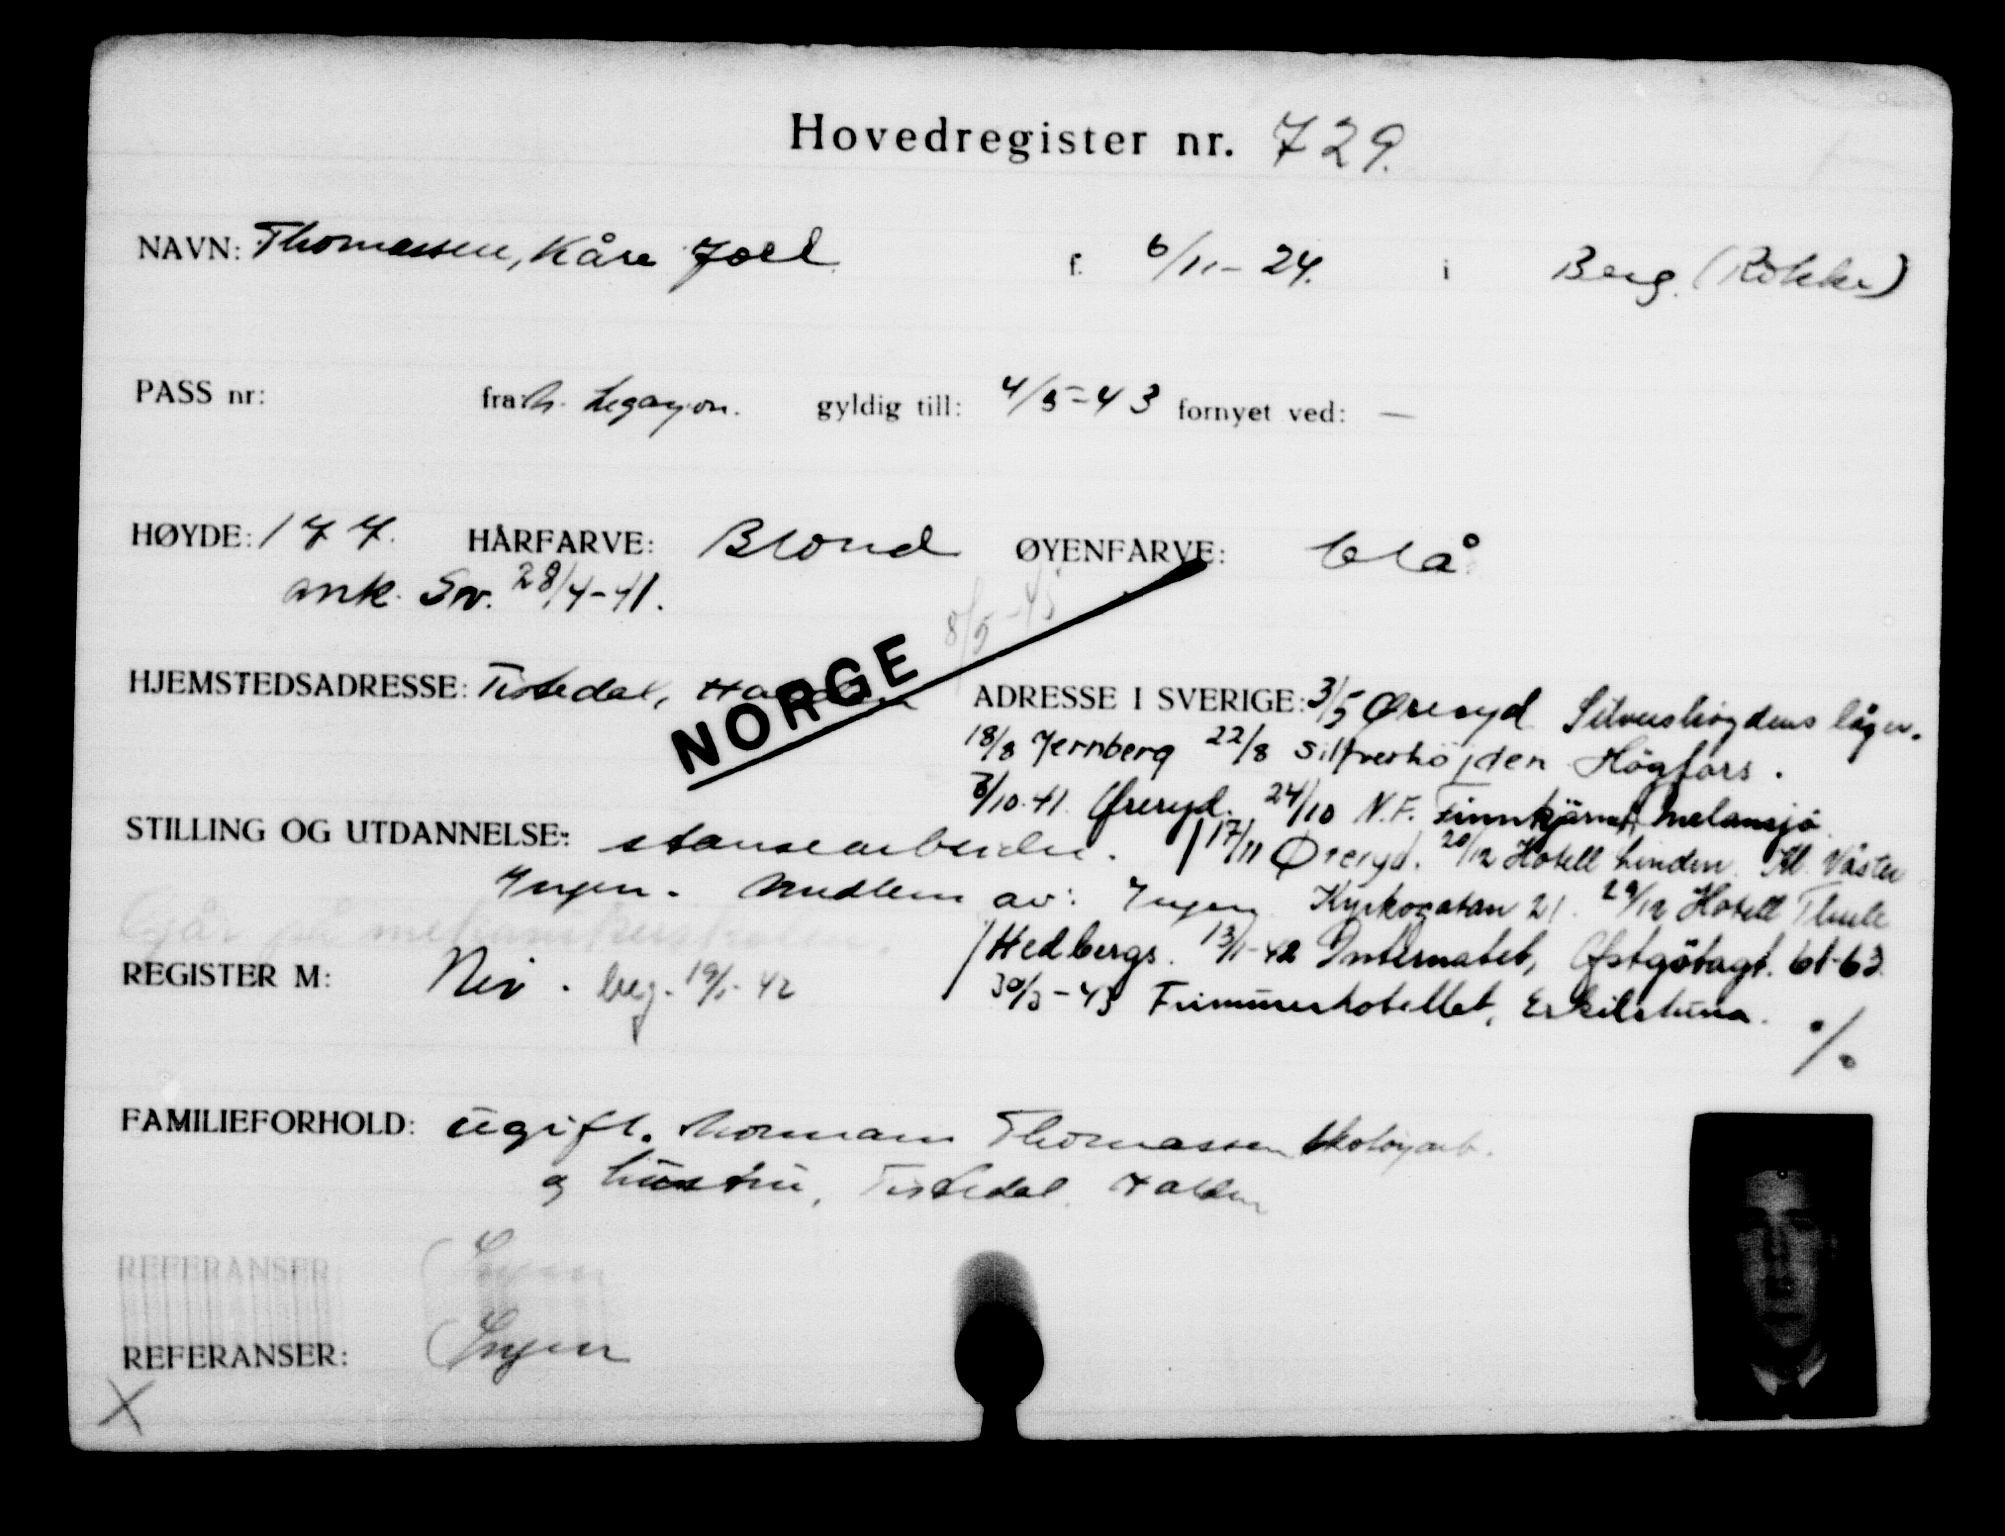 Hovedregister nr. 729.
NAVN: Thomassen, Kåre Joel f. 6/11-24. i Berg. (Rokke)
PASS nr: fra: n. Legasjon. gyldig till: 4/5-43 fornyet ved: —
HØYDE: 177. HÅRFARVE: Blond ØYENFARVE: blå
ank. Sv. 28/4-41.
8/5-45
HJEMSTEDSADRESSE: Tistedal, Halden
NORGE
ADRESSE I SVERIGE: 3/5 Øreryd Silvershøydens låger.
18/8 Jernberg 22/8 Silfverhöjden Högfors.
3/10-41. Øreryd. 24/10 N.F. Finnkjärnet, Melansjö
STILLING OG UTDANNELSE: stansearbeider. / 17/11 Øreryd. 20/12 Hotell Linden. Kl. Väster
Ingen. Medlem av: Ingen Kyrkogatan 21. 29/12 Hotell Thule
Går på mekanikerskolen.
/ Hedbergs. 13/1-42 Internatet, Østgötagt. 61-63
REGISTER M: Nei. beg. 19/1-42
30/3-43 Frimurerhotellet, Eskilstuna. %
FAMILIEFORHOLD: ugift. Normann Thomassen skotøyarb.
og hustru, Tistedal. Halden
REFERANSER: (Ingen
REFERANSER: (Ingen
X